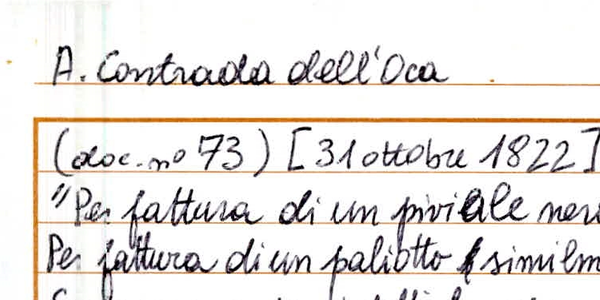 A. Contrada dell'Oca
(doc. nº 73) [31 ottobre 1822]
"Per fattura di un piviale
Per fattura di un paliotto